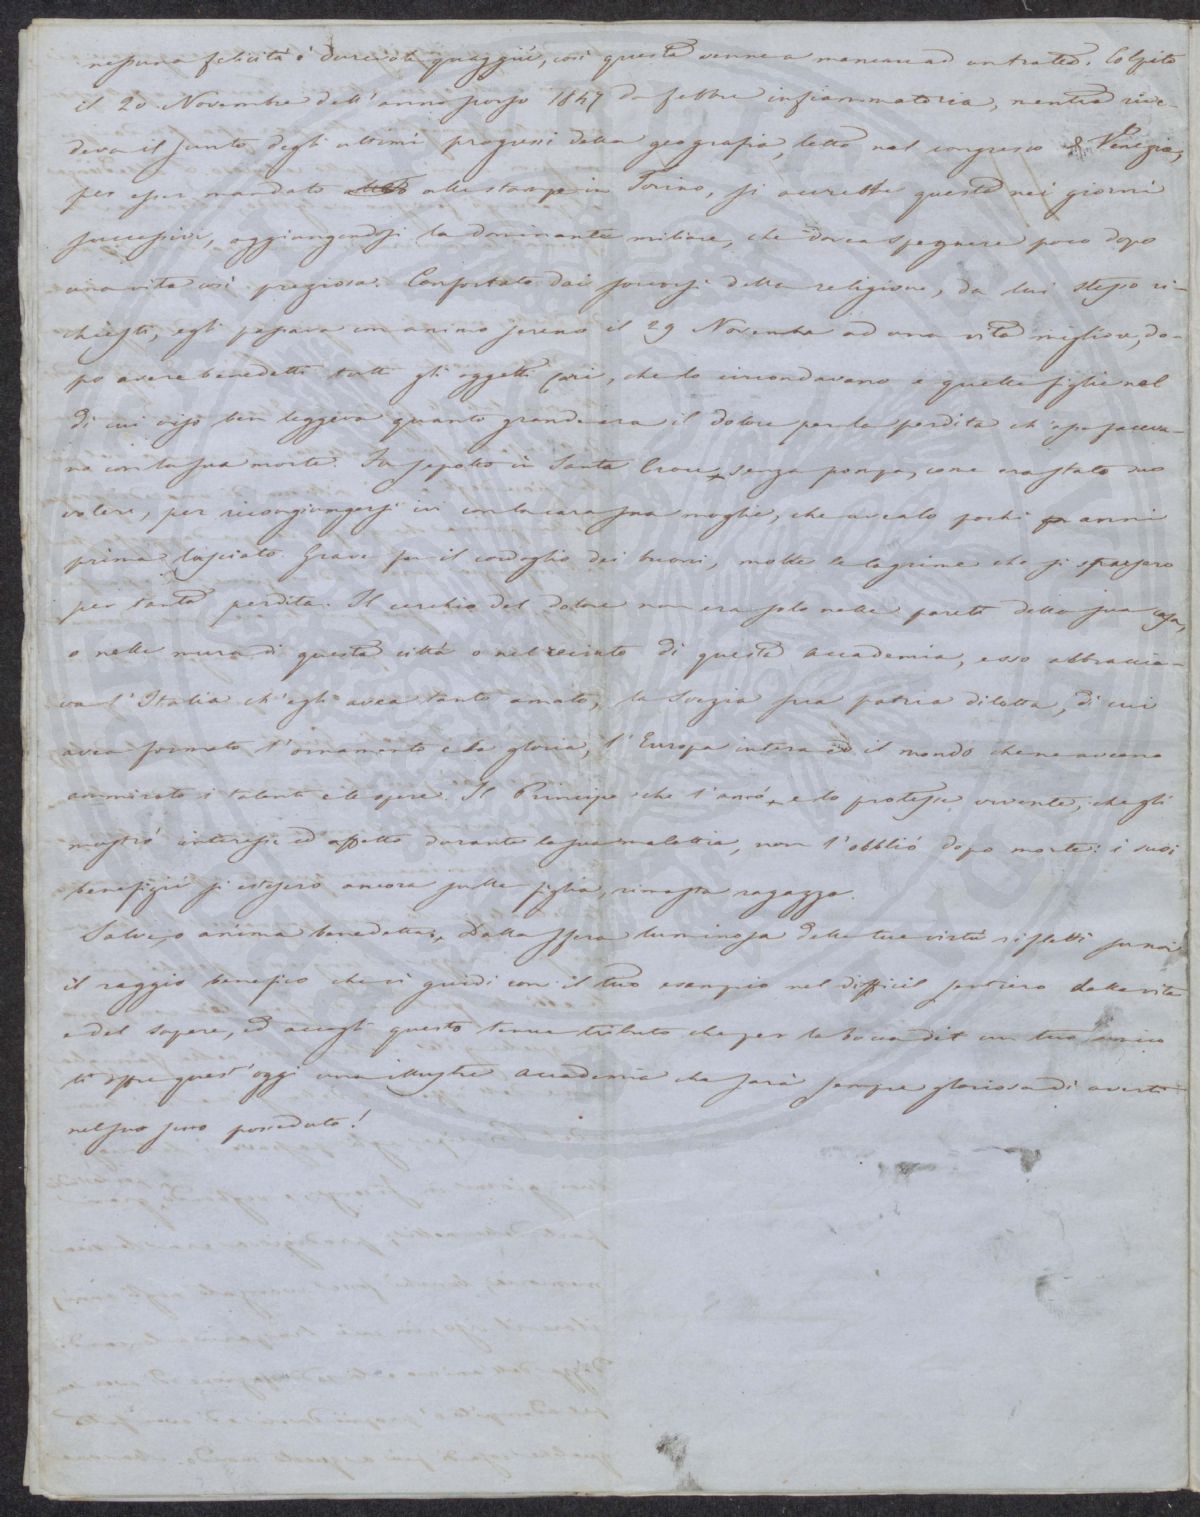 nessuna felicità è durevole quaggiù, così questa venne a mancare ad un tratto. Colpito
il 20 Novembre dell'anno scorso 1847 da febbre infiammatoria, mentre rive-
deva il sunto degli ultimi progressi della geografia, letto nel congresso di Venezia,
per esser mandato alle stampe in Torino, si accrebbe questa nei giorni
successivi, aggiungendosi la dominante miliare, che dovea spegnere poco dopo
una vita così preziosa. Confortato dai soccorsi della religione, da lui stesso ri-
chiesti, egli passava con animo sereno il 29 Novembre ad una vita migliore, do-
po avere benedetti tutti gli oggetti cari, che lo circondavano e quelle figlie nel
di cui viso ben leggeva quanto grande era il dolore per la perdita ch'esse faceva-
no con la sua morte. Fu sepolto in Santa Croce, senza pompa, come era stato suo
volere, per ricongiungersi ivi con la cara sua moglie, che avealo pochi anni
prima lasciato. Grave fu il cordoglio dei buoni, molte le lagrime che si sparsero
per tanta perdita. Il cerchio del dolore non era solo nelle pareti della sua casa,
o nelle mura di questa città o nel recinto di questa Accademia, esso abbraccia-
va l'Italia ch'egli avea tanto amato, la Svezia sua patria diletta, di cui
avea formato l'ornamento e la gloria, l'Europa intera ed il mondo che ne aveano
ammirato i talenti e le opere. Il Principe che l'amò, e lo protesse vivente, che gli
mostrò interesse ed affetto durante la sua malattia, non l'obbliò dopo morte: i suoi
benefizii si estesero ancora sulle figlie, rimaste ragazze.
Salve, o anima benedetta, Dalla sfera luminosa delle tue virtù rifletti su noi
il raggio benefico che ci guidi con il tuo esempio nel difficil sentiero della vita
e del sapere, ed accogli questo tenue tributo che per la bocca di un tuo amico
ti offre quest'oggi una illustre Accademia che sarà sempre gloriosa di averti
nel suo seno posseduto!